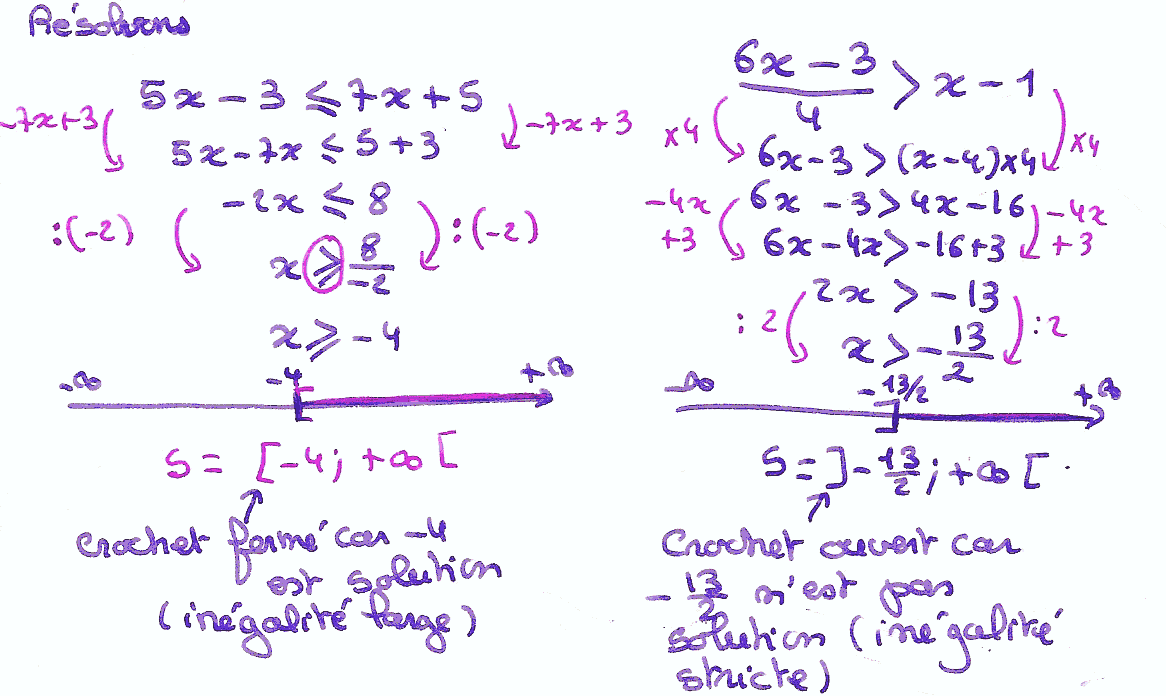 Résolvons
5x - 3 ⩽ 7x + 5
-7x+3
-7x+3
5x-7x ⩽ 5+3
-2x ⩽ 8
:(-2)
:(-2)
x ⩾ 8/-2
x ⩾ -4
-∞ -4 +∞
S = [-4; +∞ [
Crochet fermé car -4
est solution
(inégalité large)
(6x - 3)/4 > x - 1
x4
x4
6x-3 > (x-4)x4
6x - 3 > 4x - 16
-4x
+3
-4x
+3
6x - 4x > -16+3
2x > -13
: 2
:2
x > -13/2
-∞ -13/2 +∞
S = ]-13/2; +∞ [.
Crochet ouvert car
-13/2 n'est pas
solution (inégalité
stricte)